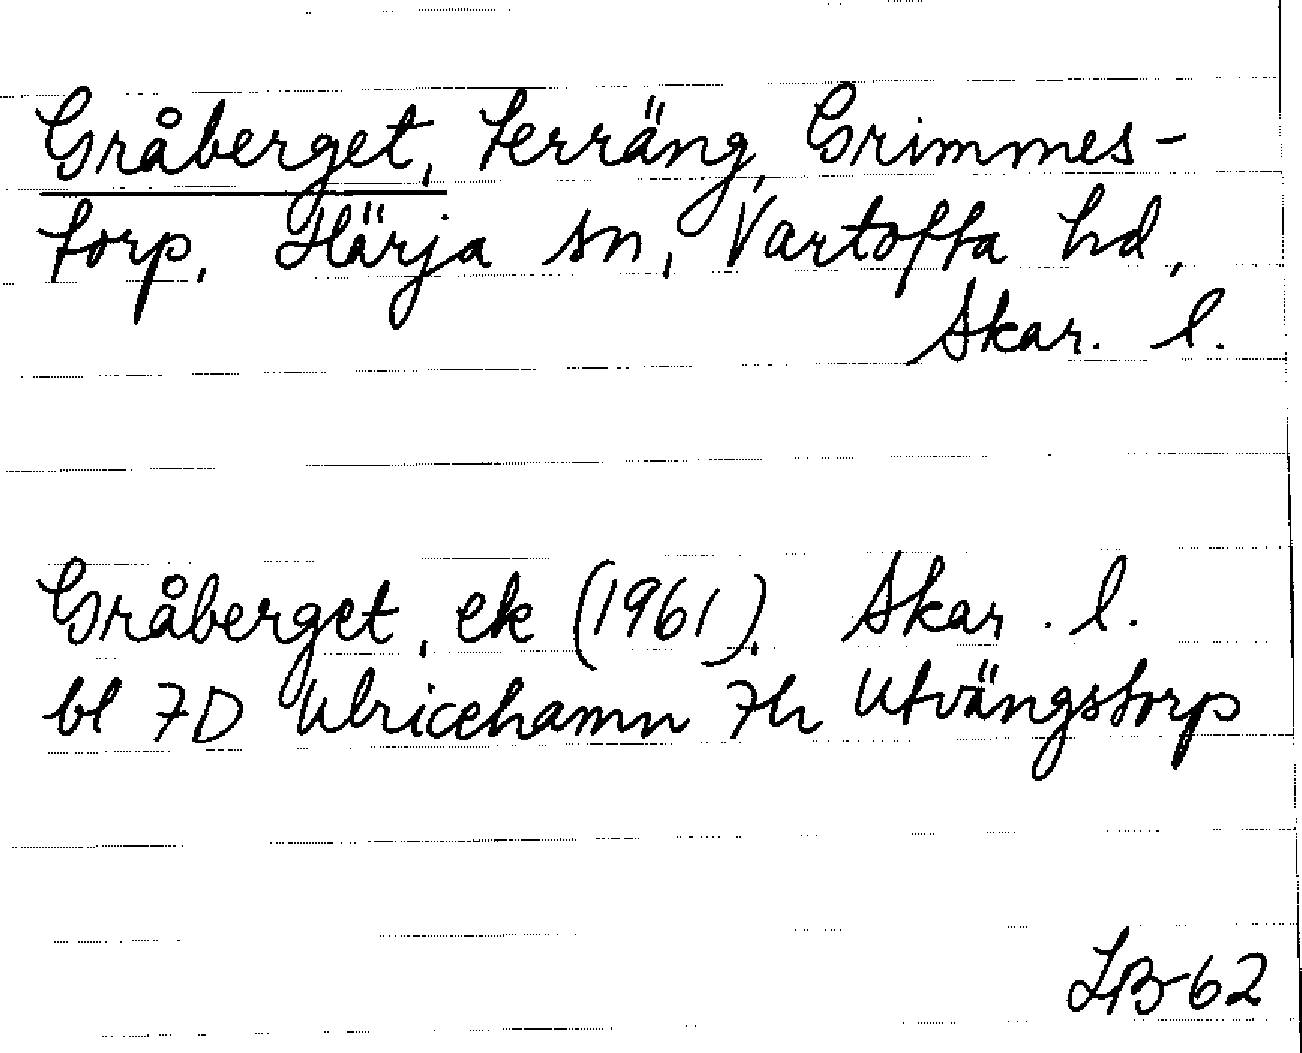 Gråberget, terräng, Grimmes-
torp, Härja sn, Vartofta hd,
Skar. l.
Gråberget, ek (1961), Skar. l.
bl 7D Ulricehamn 7h Utvängstorp
LB-62